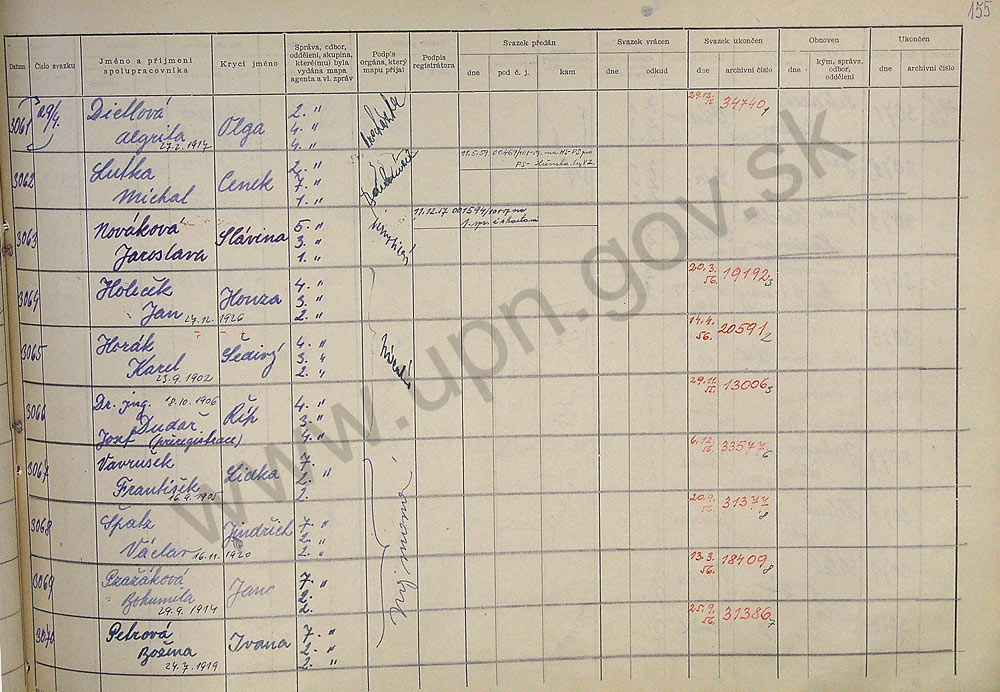 155
Datum
Číslo svazku
Jméno a příjmení spolupracovníka
Krycí jméno
Správa, odbor, oddělení, skupina, které(mu) byla vydána mapa agenta a vl. zpráv
Podpis orgána, který mapu přijal
Podpis registrátora
Svazek předán
dne
pod č. j.
kam
Svazek vrácen
dne
odkud
Svazek ukončen
dne
archivní číslo
Obnoven
dne
kým, správa, odbor, oddělení
Ukončen
dne
archivní číslo
3061 29/4. Dietlová Olga 2. "
Algrita 4. "
27.2.1914 4. "
34740 1
3062 Lutka Cenek 2. "
Michal 7. "
1. "
11.5.59
3063 Nováková Slávina 5. "
Jaroslava 3. "
1. "
11.12.57 na
3064 Holeček Honza 4. "
Jan 27.12.1926 3. "
2. "
20.3. 56. 19192 3
3065 Horák Šedivý 4. "
Karel 3. "
23.9.1902 2. "
14.4. 56. 20591 2
3066 Dr. ing. 18.10.1906 Říp 4. "
Dudař 3. "
Josef (přeregistrace) 4. "
29.11. 55. 13006 3
3067 Vavrušek Lidka 7. "
František 2. "
16.9.1905 2.
6.12. 56. 33577 6
3068 Špatz Jindřich 7. "
Václav 16.11.1920 2. "
2. "
20.9. 56. 31377 8
3069 Pražáková Jane 7. "
Bohumila 2. "
29.9.1914 2.
13.3. 56. 18409 8
3070 Petrová Ivana 7. "
Božena 2. "
24.7.1919 2. "
25.9. 56. 31386 7
www.upn.gov.sk